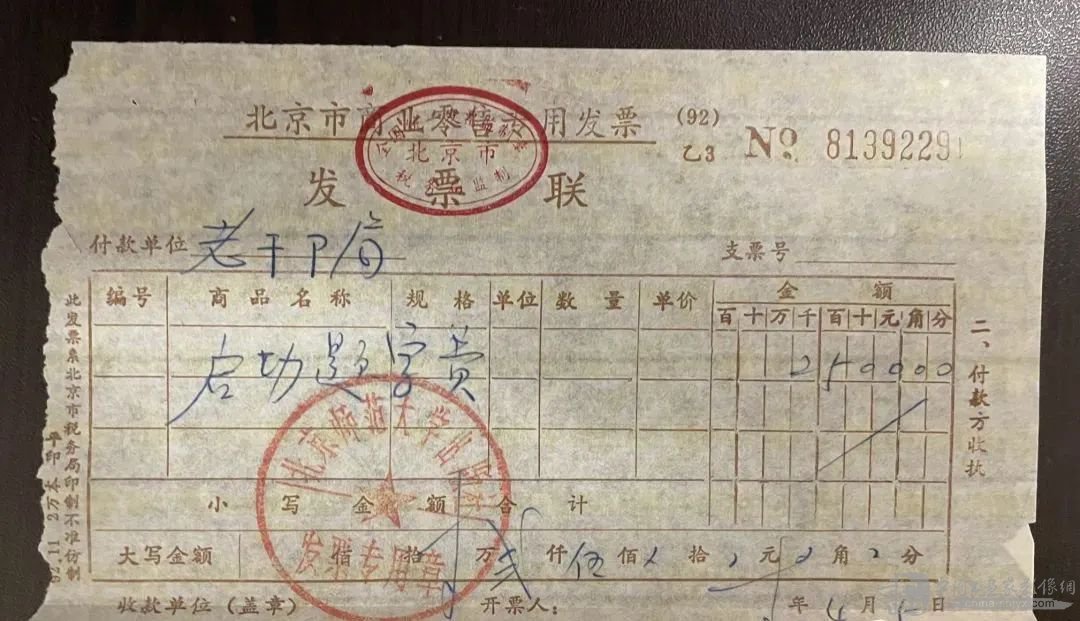 北京市商业零售专用发票 (92)
乙3 No 8139229
发票联
北京市
税务 监制
付款单位 老干卩局 支票号
编号 商品名称 规格 单位 数量 单价 金额
百十万千百十元角分
启功题字费 250000
小写金额合计
大写金额 佰 拾 万 贰仟伍佰 拾 元 角 分
收款单位(盖章) 开票人: 年 4 月 日
北京师范大学
发票专用章
二、付款方收执
此发票系北京市税务局印制不准仿制
92.11 2万本 平印